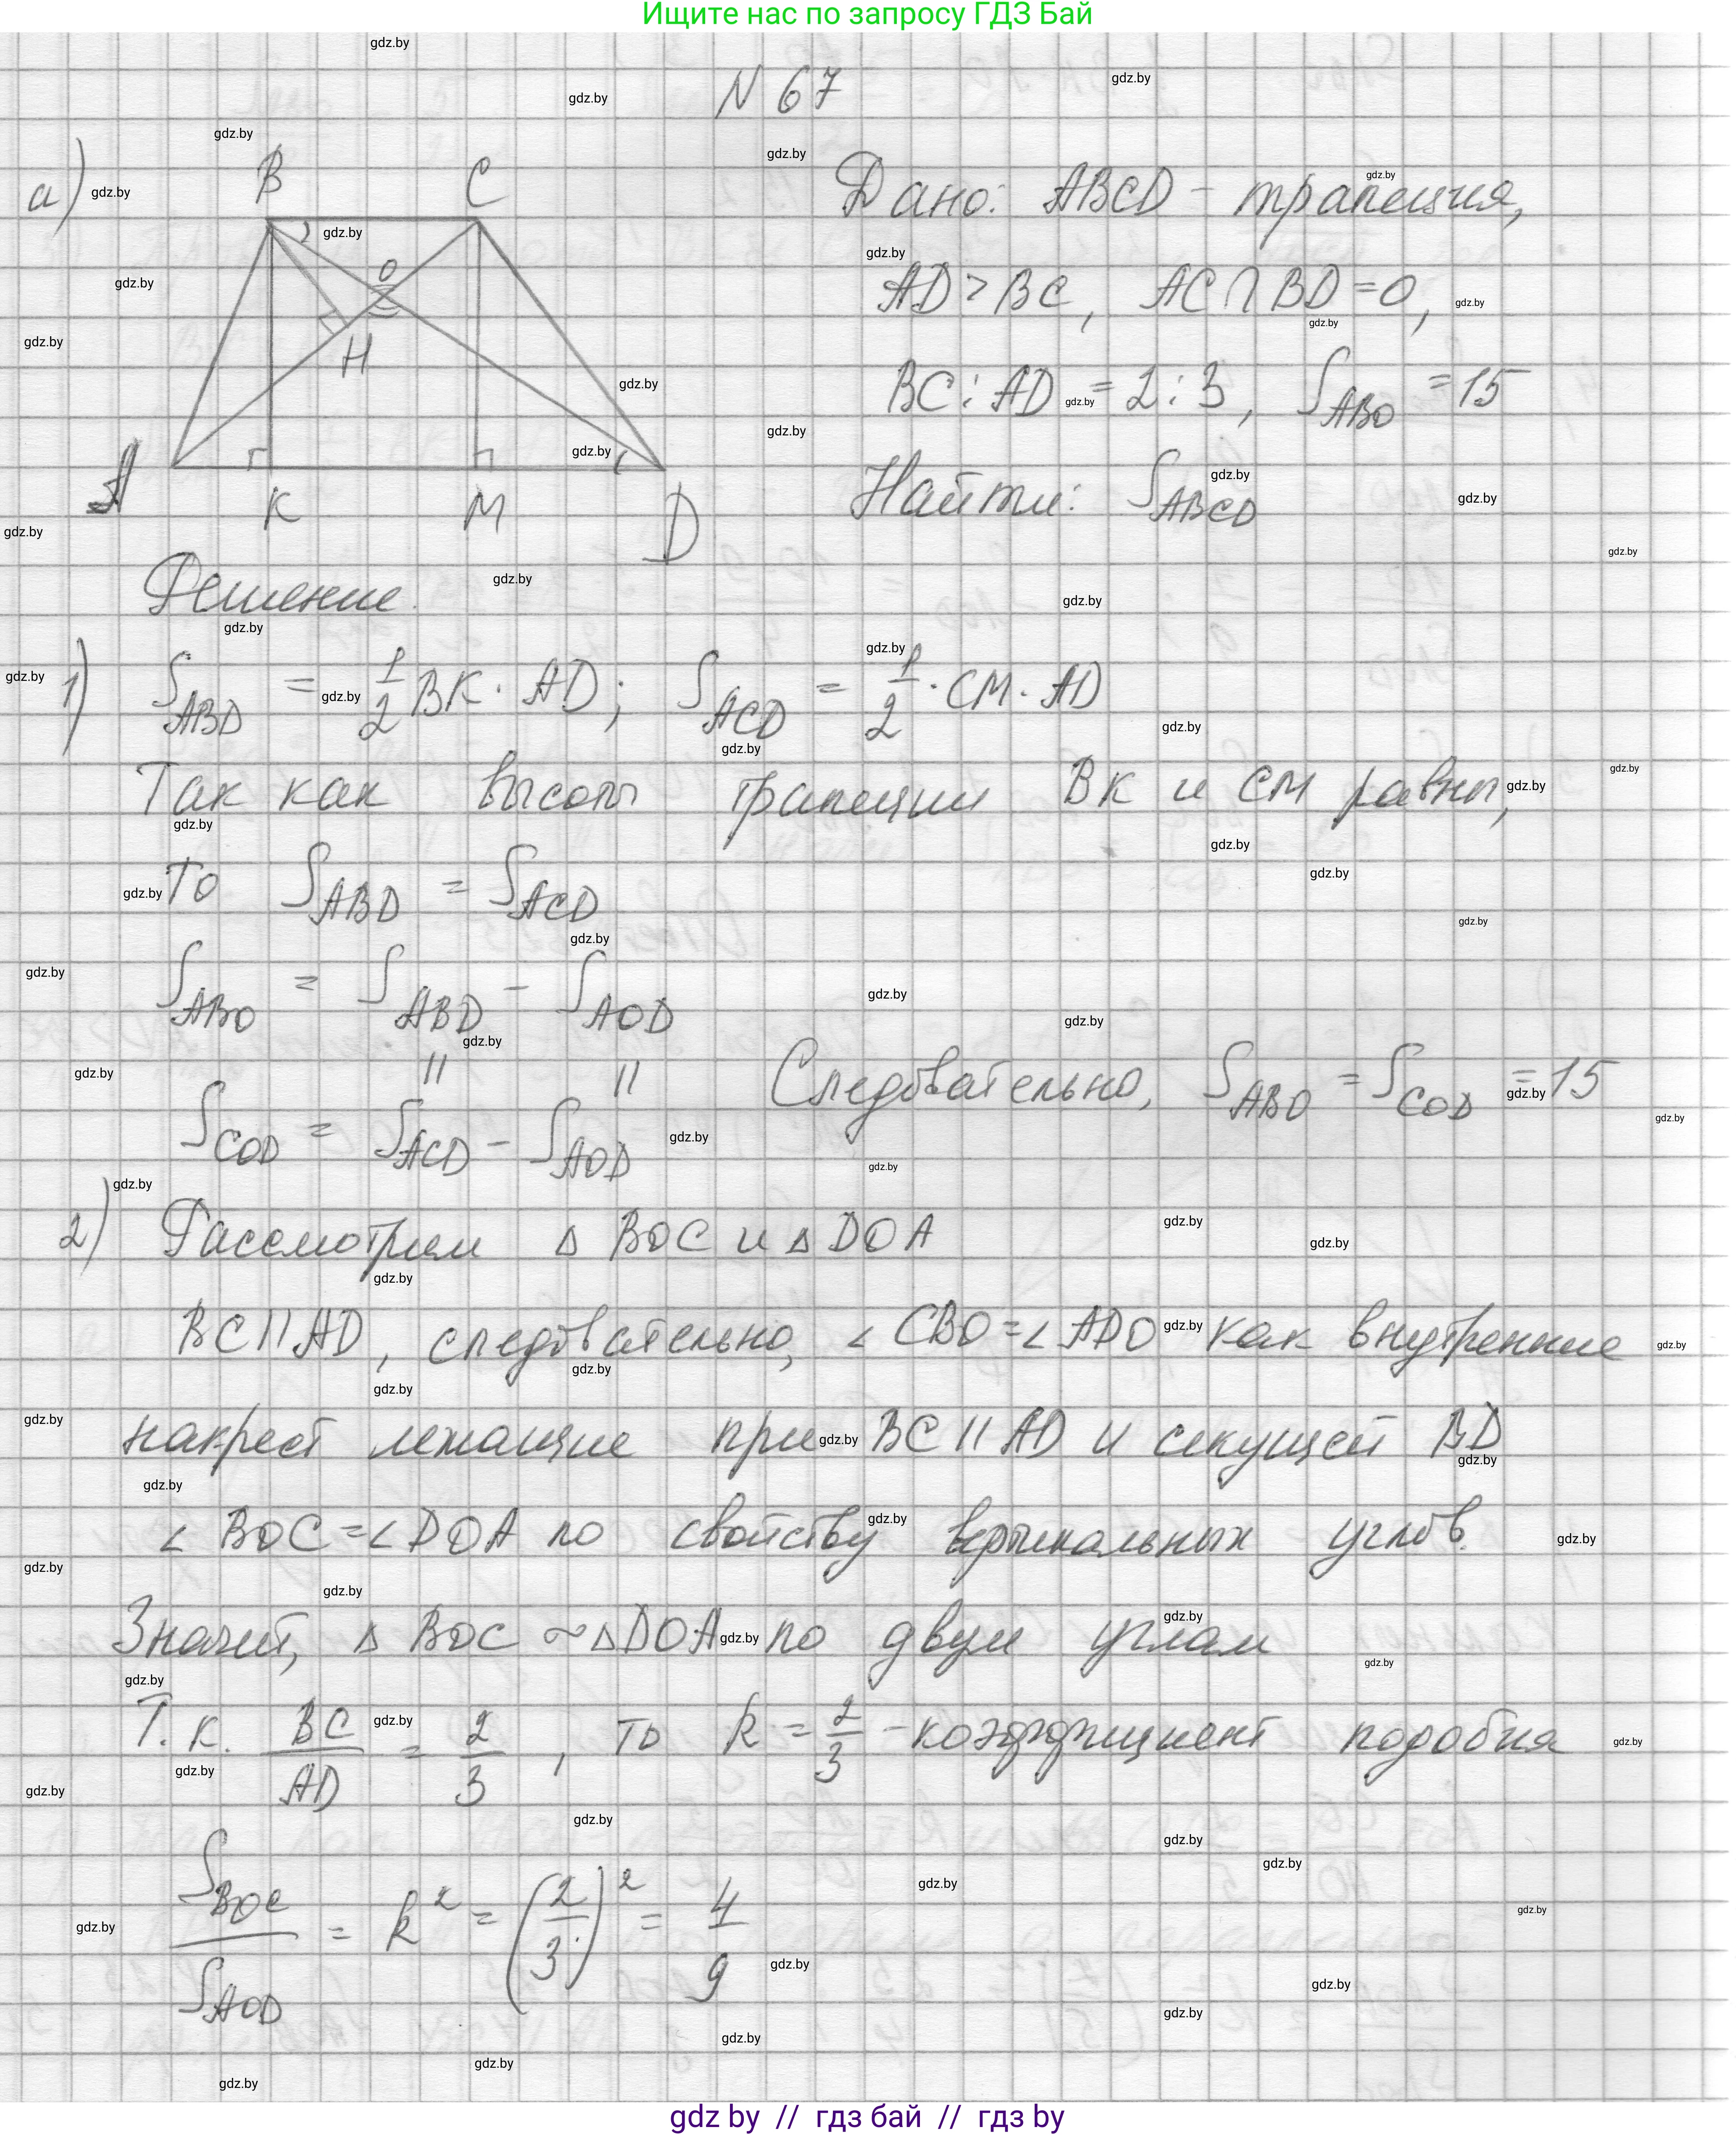 Ищите нас по запросу ГДЗ Бай
N 67
а)
B C
O
H
A K M D
Дано: ABCD - трапеция,
AD > BC, AC ∩ BD = O,
BC : AD = 2 : 3, S_ABO = 15
Найти: S_ABCD
Решение.
1) S_ABD = 1/2 BK · AD; S_ACD = 1/2 · CM · AD
Так как высоты трапеции BK и CM равны,
то S_ABD = S_ACD
S_ABO = S_ABD - S_AOD
|| ||
S_COD = S_ACD - S_AOD
Следовательно, S_ABO = S_COD = 15
2) Рассмотрим Δ BOC и Δ DOA
BC || AD, следовательно, ∠ CBO = ∠ ADO как внутренние
накрест лежащие при BC || AD и секущей BD
∠ BOC = ∠ DOA по свойству вертикальных углов.
Значит, Δ BOC ~ Δ DOA по двум углам
Т.к. BC/AD = 2/3, то k = 2/3 - коэффициент подобия
S_BOC/S_AOD = k² = (2/3)² = 4/9
gdz by // гдз бай // гдз by